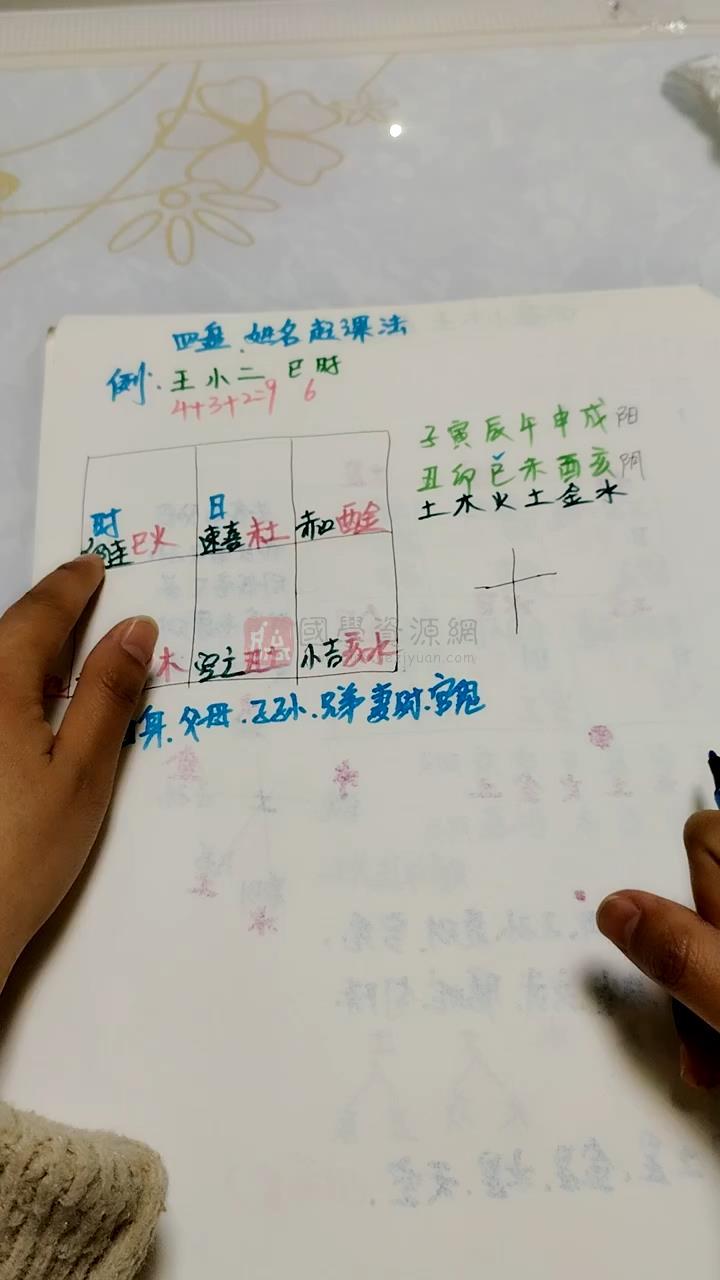 四盘、姓名起课法
例. 王小二 巳时
4+3+2=9 6
子寅辰午申戌 阳
丑卯巳未酉亥 阴
土木火土金水
时 日
连 巳火 速喜 未土 赤口 酉金
木 空亡 丑土 小吉 亥水
國學資源網
身.父母.子孙.兄弟 妻财.官鬼